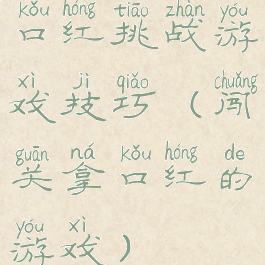 kǒu hóng tiāo zhàn yóu
口红挑战游
xì jì qiǎo chuǎng
戏技巧（闯
guān ná kǒu hóng de
关拿口红的
yóu xì
游戏）